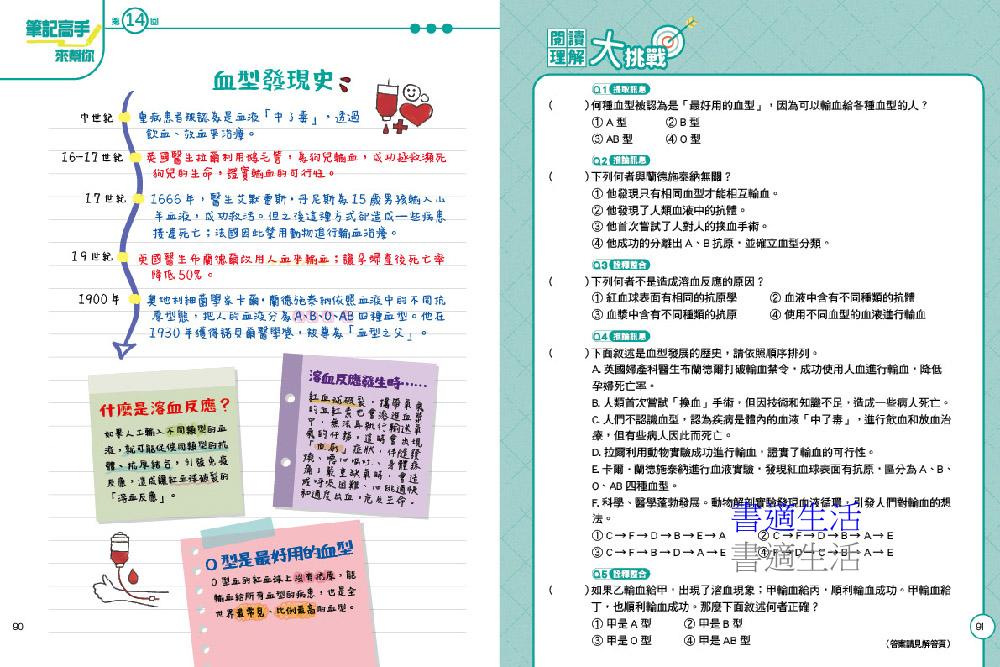 筆記高手
來幫你
第14回
血型發現史
中世紀
重病患者被認為是血液「中了毒」，透過
飲血、放血來治療。
16-17世紀
英國醫生拉爾利用鵝毛管，為狗兒輸血，成功拯救瀕死
狗兒的生命，證實輸血的可行性。
17世紀
1666年，醫生艾默雷斯，丹尼斯為15歲男孩輸入小
羊血液，成功救活。但之後這種方式卻造成一些病患
接連死亡；法國因此禁用動物進行輸血治療。
19世紀
英國醫生布蘭德爾改用人血來輸血；讓孕婦產後死亡率
降低50%。
1900年
奧地利細菌學家卡爾·蘭德施泰納依照血液中的不同抗
原型態，把人的血液分為A、B、O、AB四種血型。他在
1930年獲得諾貝爾醫學獎，被尊為「血型之父」。
什麼是溶血反應？
如果人工輸入不同類型的血
液，就可能促使同類型的抗
體、抗原結合，引發免疫
反應，造成讓紅血球破裂的
「溶血反應」。
溶血反應發生時……
紅血球破裂，攜帶氧氣
的血紅素也會滲進血漿
中，無法再執行輸送氧
氣的任務，這時會出現
症狀，伴隨發
燒、噁心嘔吐、身體疼
痛；嚴重缺氧時，會造
成呼吸困難、心跳過快
和過度放血，危及生命。
O型是最好用的血型
O型血的紅血球上沒有抗原，能
輸血給所有血型的病患，也是全
世界最常見、比例最高的血型。
90
閱讀
理解
大挑戰
Q1 提取訊息
( )何種血型被認為是「最好用的血型」，因為可以輸血給各種血型的人？
①A型 ②B型
③AB型 ④O型
Q2 推論訊息
( )下列何者與蘭德施泰納無關？
①他發現只有相同血型才能相互輸血。
②他發現了人類血液中的抗體。
③他首次嘗試了人對人的換血手術。
④他成功的分離出A、B抗原，並確立血型分類。
Q3 詮釋整合
( )下列何者不是造成溶血反應的原因？
①紅血球表面有相同的抗原學 ②血液中含有不同種類的抗體
③血漿中含有不同種類的抗原 ④使用不同血型的血液進行輸血
Q4 推論訊息
( )下面敘述是血型發展的歷史，請依照順序排列。
A. 英國婦產科醫生布蘭德爾打破輸血禁令，成功使用人血進行輸血，降低
孕婦死亡率。
B. 人類首次嘗試「換血」手術，但因技術和知識不足，造成一些病人死亡。
C. 人們不認識血型，認為疾病是體內的血液「中了毒」，進行飲血和放血治
療，但有些病人因此而死亡。
D. 拉爾利用動物實驗成功進行輸血，證實了輸血的可行性。
E. 卡爾·蘭德施泰納進行血液實驗，發現紅血球表面有抗原，區分為A、B、
O、AB四種血型。
F. 科學、醫學蓬勃發展。動物解剖實驗發現血液循環，引發人們對輸血的想
法。
①C→F→D→B→E→A ②C→F→D→B→A→E
③C→F→B→D→A→E ④F→D→C→B→A→E
書適生活
書適生活
Q5 詮釋整合
( )如果乙輸血給甲，出現了溶血現象；甲輸血給丙，順利輸血成功。甲輸血給
丁，也順利輸血成功。那麼下面敘述何者正確？
①甲是A型 ②甲是B型
③甲是O型 ④甲是AB型
（答案請見解答頁）
91